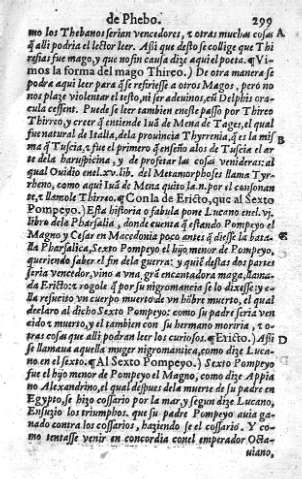 de Phebo. 299
mo los Thebanos serian vencedores, τ otras muchas cosas A
q̃ alli podria el lector leer. Assi que desto se collige que Thi
resias fue mago, y que no sin causa dize aquiel poeta. ¶Vi-
mos la forma del mago Thireo.) De otra manera se
podra aqui leer para q̃ se refiriesse a otros Magos, pero no
nos plaze violentar el testo, ni ser adeuinos, cũ Delphis ora-
cula cessent. Puede se leer tambien eneste passo por Thireo
Thirreo, y creer q̃ entiende Iuã de Mena de Tages, el qual
fue natural de Italia, dela prouincia Thyrrenia, q̃ es la mis B
ma q̃ Tuscia, τ fue el primero q̃ enseño alos de Tuscia el ar
te dela haruspicina, y de profetar las cosas venideras: al
qual Ouidio enel.xv.lib. del Metamorphoses llama Tyr-
rheno, como aqui Iuã de Mena quito la.n. por el consonan
te, τ llamole Thirreo. ¶Con la de Ericto, que al Sexto
Pompeyo.) Esta historia o fabula pone Lucano enel.vj.
libro dela Pharsalia, donde cuenta q̃ estando Pompeyo el
Magno y Cesar en Macedonia poco antes q̃ diesse la bata- C
lla Pharsalica, Sexto Pompeyo el hijo menor de Pompeyo,
queriendo saber el fin dela guerra: y quiẽ destas dos partes
seria vencedor, vino a vna grã encantadora maga, llama-
da Ericto: τ rogole q̃ por su nigromancia se lo dixesse: y e-
lla resucito vn cuerpo muerto de vn hõbre muerto, el qual
declaro al dicho Sexto Pompeyo: como su padre seria ven
cido τ muerto, y el tambien con su hermano moriria, τ o-
tras cosas que alli podran leer los curiosos. ¶Ericto.) Assi D
se llamaua aquella muger nigromantica, como dize Luca-
no en el sexto. ¶Al Sexto Pompeyo.) Sexto Pompeyo
fue el hijo menor de Pompeyo el Magno, como dize Appia
no Alexandrino, el qual despues dela muerte de su padre en
Egypto, se hizo cossario por la mar, y segun dize Lucano,
Ensuzio los triumphos. que su padre Pompeyo auia ga-
nado contra los cossarios, haziendo se el cossario. Y co-
mo tentasse venir en concordia conel emperador Octa-
uiano,